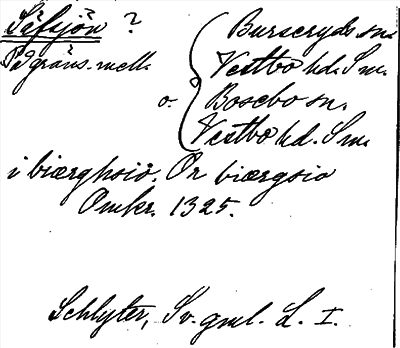 Säfsjön ?
På gräns. mell.
Burseryds sn.
Vestbo hd. Sm.
o. Bosebo sn.
Vestbo hd. Sm.
i biærghsiö. Or biærgsio
Omkr. 1325.
Schlyter, Sv. gml. L. I.